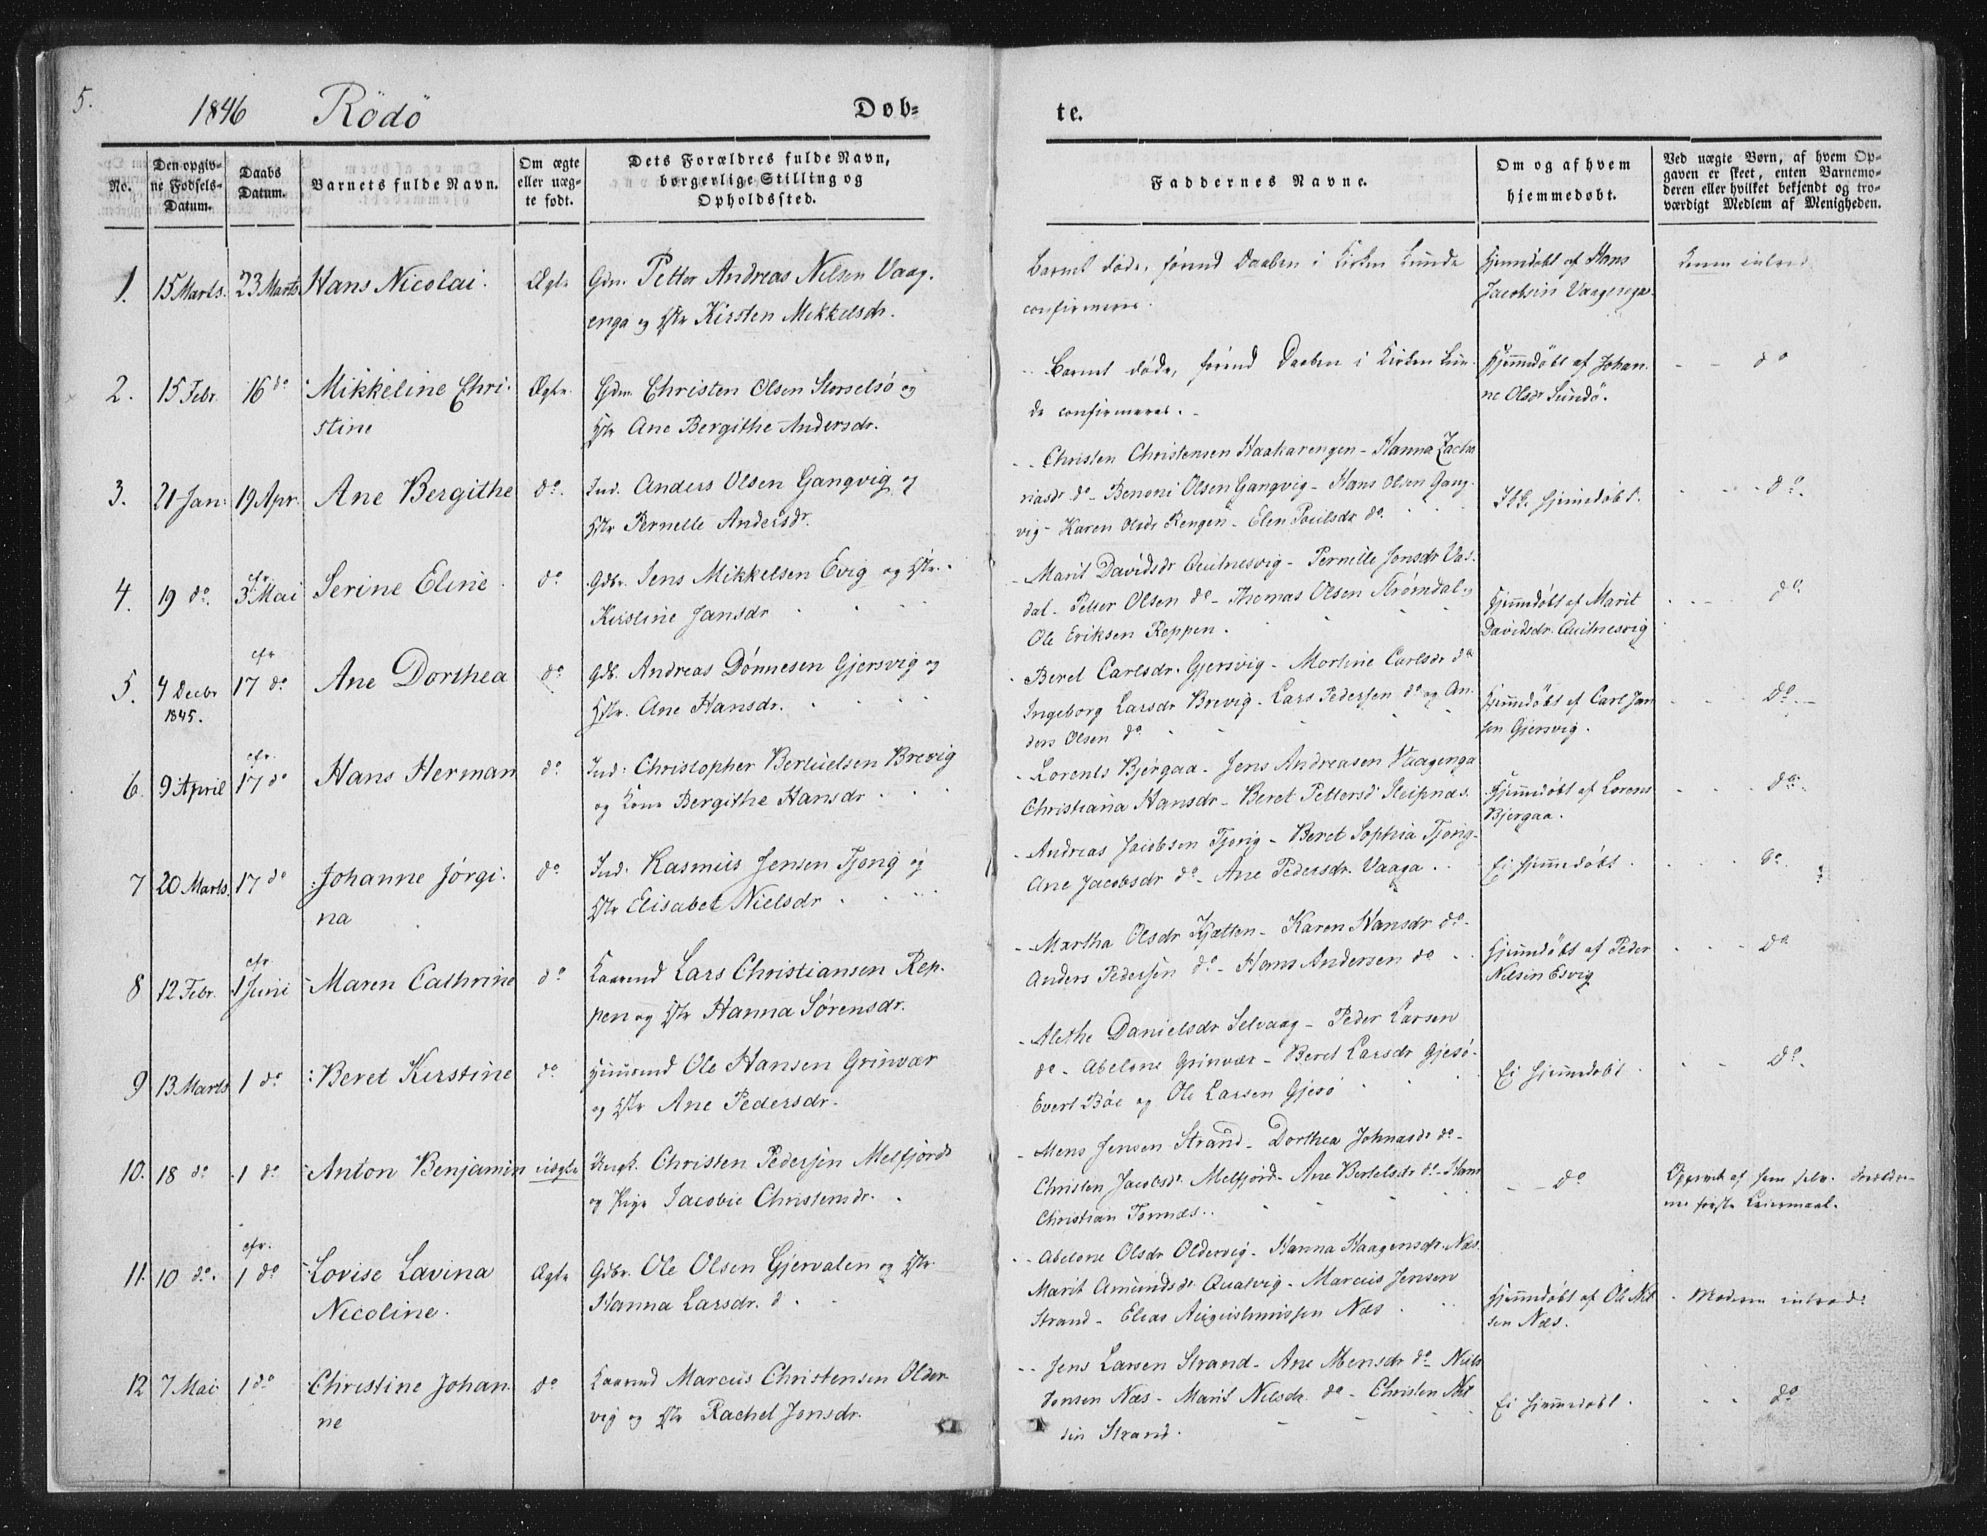 5.
1846 Rödö Døb-
te.
No.
Den opgiv-
ne Fødsels-
Datum.
Daabs
Datum.
Barnets fulde Navn.
Om ægte
eller uæg-
te født.
Dets Forældres fulde Navn,
borgerlige Stilling og
Opholdssted.
Faddernes Navne.
Om og af hvem
hjemmedøbt.
Ved uægte Børn, af hvem Op-
gaven er skeet, enten Barnemo-
deren eller hvilket bekjendt og tro-
værdigt Medlem af Menigheden.
1. 15 Marts. 23 Marts Hans Nicolai. Ægte Gdm. Petter Andreas Nilsen Vaag-
enga og Hstr Kirsten Mikkelsdr.
Barnet døde, førend Daaben i Kirken kunde
confirmeres.
Hjemdøbt af Hans
Jacobsen Vaagenga.
2. 15 Febr. 16 do Mikkeline Chri-
stine
Ægte. Gdm. Christen Olsen Storselsö og
Hstr Ane Bergithe Andersdr.
Barnet døde, førend Daaben i Kirken kun-
de confirmeres.
Hjemdøbt af Johan-
ne Olsdr Sundö.
do
3. 21 Jan: 19 Apr. Ane Bergithe do. Ind. Anders Olsen Gangvig og
Hstr Pernelle Andersdr.
Christen Christensen Haakarengen - Hanna Zacha
riasdr do - Benoni Olsen Gangvig - Hans Olsen Gang-
vig - Karen Olsdr Rengen - Elen Poulsdr do.
Ikke hjemdøbt.
do.
4. 19 do. cfr 3 Mai Serine Eline do Gdbr. Jens Mikkelsen Evig og Hstr.
Kirstine Jansdr
Marit Davidsdr - Pernille Jonsdr Vas-
dal - Petter Olsen do - Thomas Olsen Strømdal og
Ole Eriksen Reppen.
Hjemdøbt af Marit
Davidsdr.
do
5. 4 Decbr
1845.
cfr 17 do Ane Dorthea do Gdb. Andreas Dönnesen Gjersvig og
Hstr. Ane Hansdr.
Beret Carlsdr. Gjersvig - Mortine Carlsdr do
Ingeborg Larsdr Brevig - Lars Pedersen do og An-
ders Olsen do
Hjemdøbt af Carl Jan
sen Gjersvig.
do.
6. 9 April cfr. 17 do Hans Herman do Ind: Christopher Bertuelsen Brevig
og Kone Bergithe Hansdr
Lorents Bjergaa - Jens Andreasen Vaagenga
Christiana Hansdr - Beret Pettersd Sleipnæs.
Hjemdøbt af Lorens
Bjergaa.
do.
7 20 Marts. 17 do Johanne Jørgi-
na
do Ind. Rasmus Jensen Tjong og
Hstr Elisabet Nielsdr
Andreas Jacobsen Tjong - Beret Sophia Tjong-
Ane Jacobsdr do - Ane Pedersdr Vaaga.
Ei hjemdøbt.
do.
8 12 Febr. cfr 1 Juni Maren Cathrine do Lars Christiansen Rep-
pen og Hstr Hanna Sørensdr.
Martha Olsdr Kjætten - Karen Hansdr do-
Anders Pedersen do - Hans Andersen do
Hjemdøbt af Peder
Nilsen Esvig
do
9 13 Marts 1 do Beret Kirstine do Ole Hansen Grinvær
og Hstr Ane Pedersdr.
Alethe Danielsdr Selvaag - Peder Larsen
do - Abelone Grinvær - Beret Larsdr Gjesö-
Evert Böe og Ole Larsen Gjesö
Ei hjemdøbt.
do.
10. 18 do 1 do Anton Benjamin uægte Ungk. Christen Pedersen Melfjord
og Pige Jacobie Christensdr.
Mens Jensen Strand - Dorthea Johnasdr do-
Christen Jacobsdr. Melfjord - Ane Bertelsdr do - Hans
Christian Tonnæs.
do
Opgivet af dem selv.
første Leiermaal.
11. 10 do. cfr. 1 do Lovise Lavina
Nicoline.
Ægte Gdbr. Ole Olsen Gjervalen og Hstr
Hanna Larsdr.
Abelone Olsdr Oldervig - Hanna Haagensdr Næs.
Marit Amundsdr Qualvig - Marcus Jensen
Strand - Elias Augustinussen Næs
Hjemdøbt af Ole Nil
sen Næs.
Moderen introd:
12 7 Mai 1 do Christine Johan-
ne
do Marcus Christensen Older-
vig og Hstr Rachel Jonsdr.
Jens Larsen Strand - Ane Mensdr do - Niels
Jonsen Næs - Marit Nilsdr do - Christen Nil
sen Strand.
Ei hjemmedøbt.
do